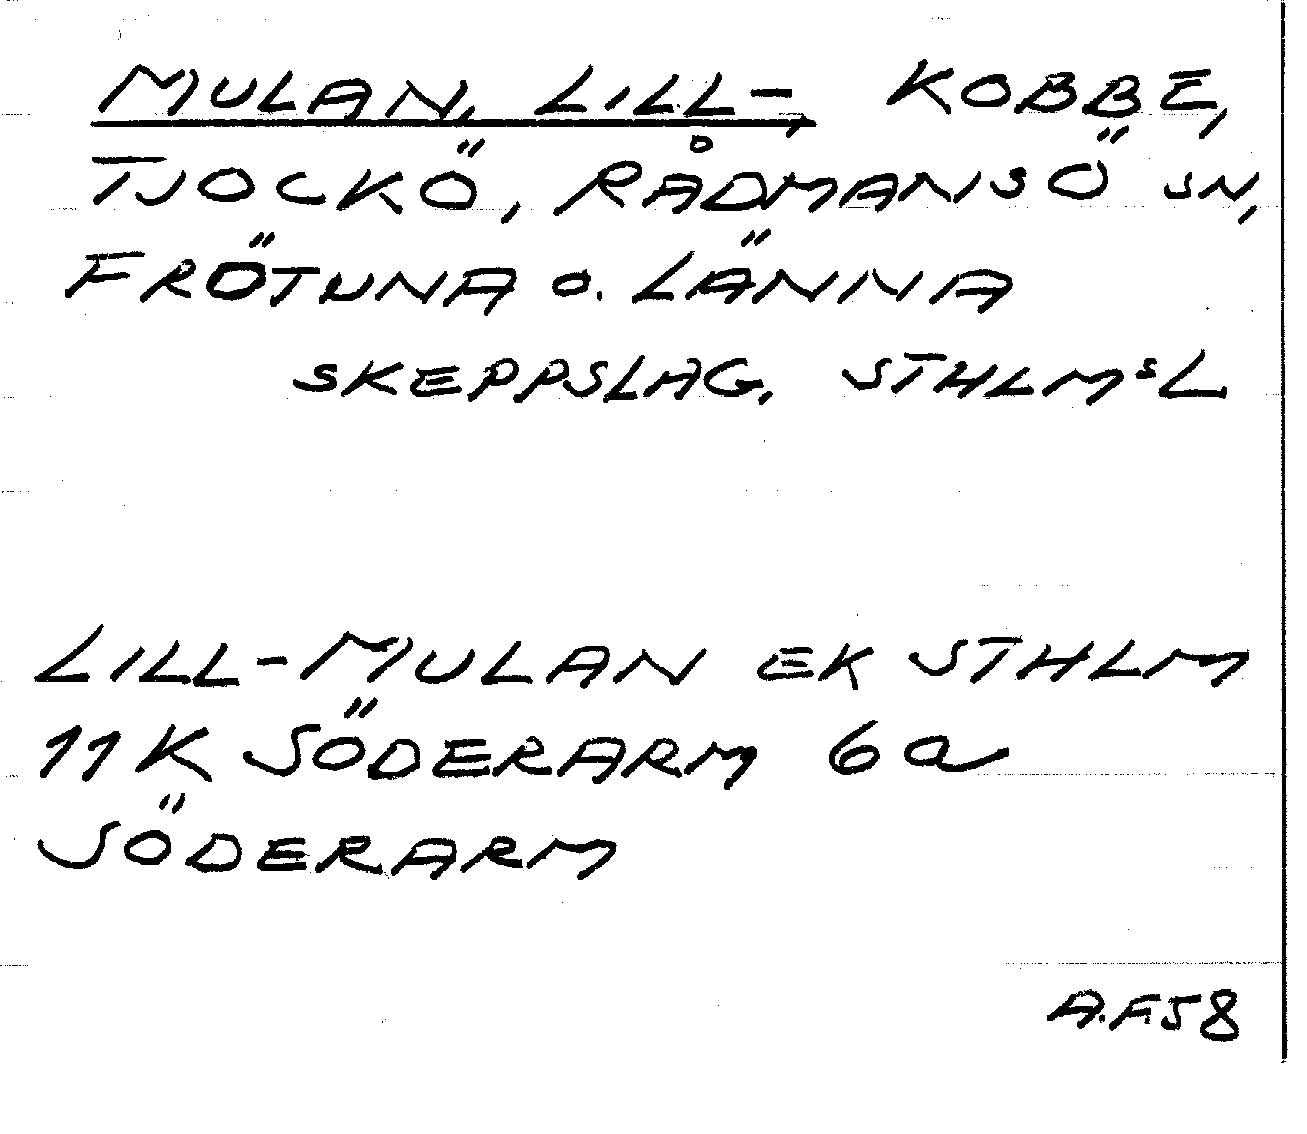 MULAN, LILL-, KOBBE,
TJOCKÖ, RÅDMANSÖ SN,
FRÖTUNA o. LÄNNA
SKEPPSLAG, STHLMSL
LILL-MULAN EK STHLM
11K SÖDERARM 6a
SÖDERARM
A.F58